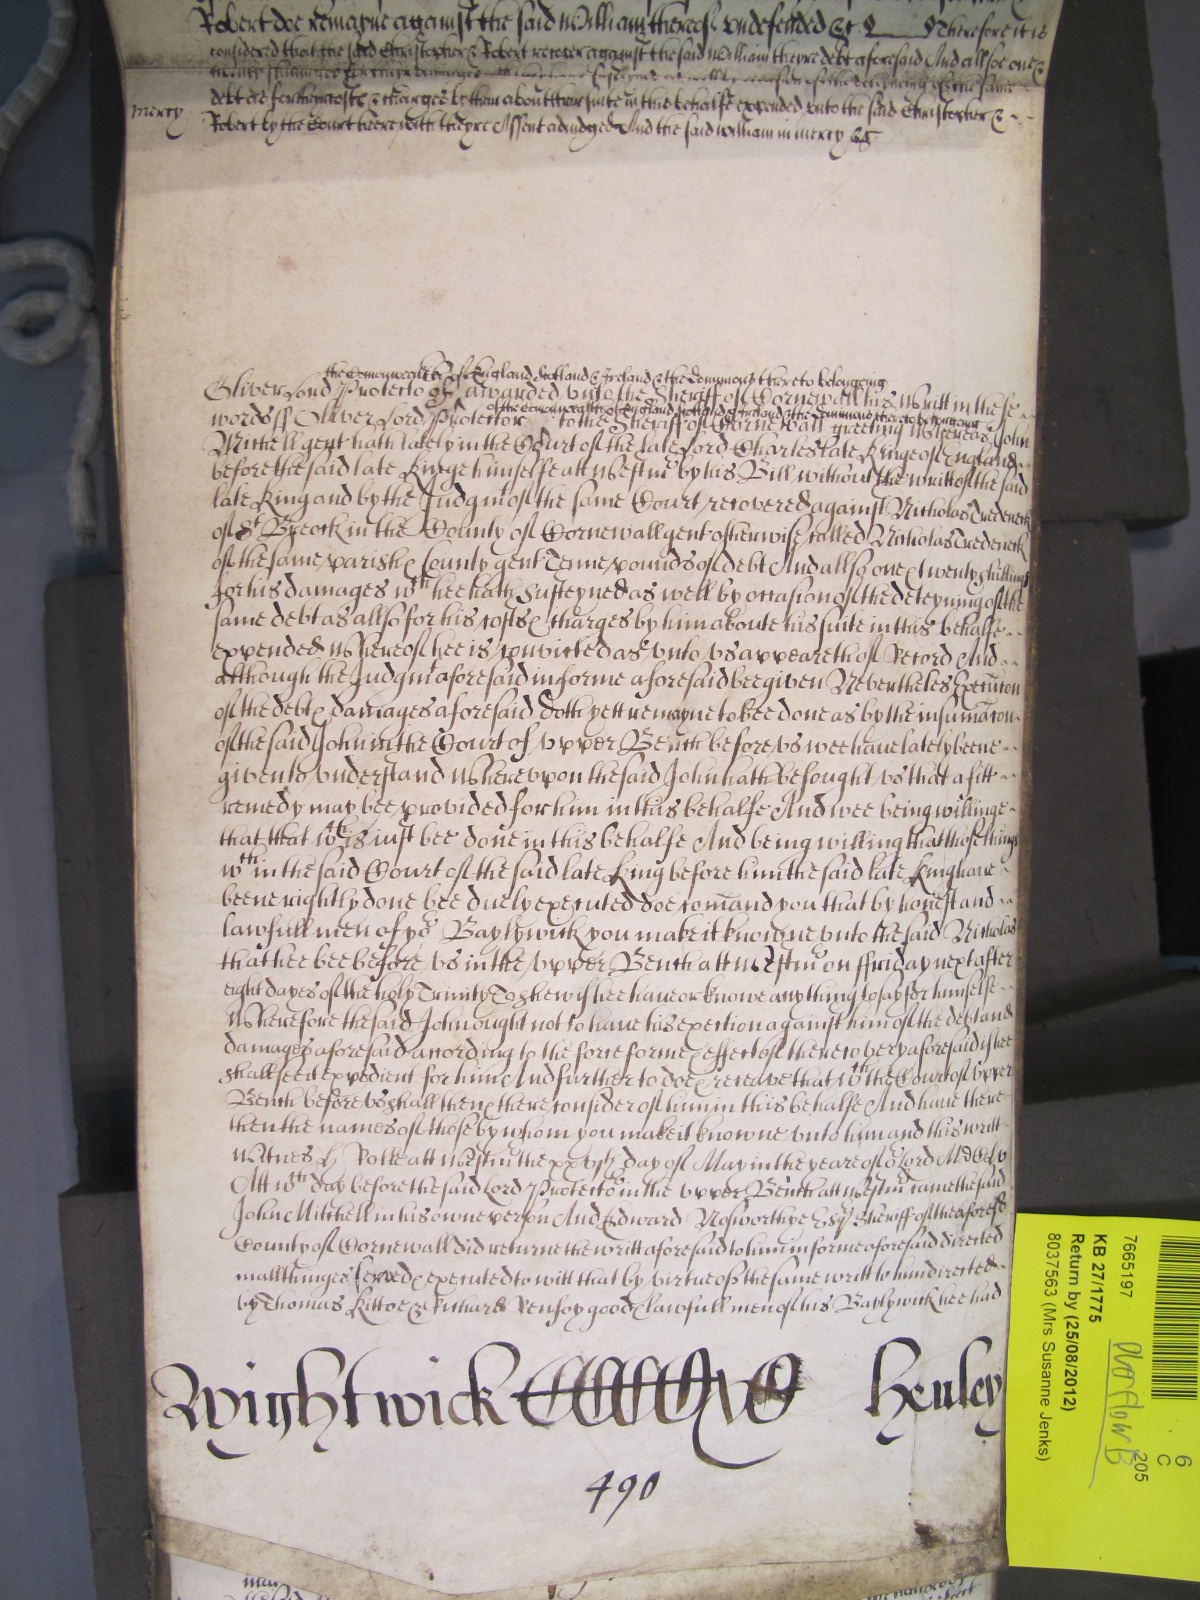 Robert doe remayne against the said William thereof undefended &c Therefore it is
considered that the said Christopher & Robert recover against the said William theyre debt aforesaid And allsoe one &
twenty shillinges for theyr damages
debt as for theyr costs & charges by them about theyr suite in this behalfe expended unto the said Christopher &
mercy
Robert by the Court here with theyre Assent adiudged And the said William in mercy &c
the Comonwealth of England Scotland & Ireland & the Dominions thereto belongeing
Oliver Lord Protector of awarded unto the Sheriff of Cornewall his writt in these
of the Comonwealth of England Scotland & Ireland & the dominions thereto belongeing
words ss Oliver Lord Protector to the Sheriff of Cornewall greeting Whereas John
Mitchell gent hath lately in the Court of the late Lord Charles late Kinge of England
before the said late Kinge himselfe att Westmr by his Bill without the writt of the said
late King and by the Judgmt of the same Court recovered against Nicholas Tredenick
of St Breock in the County of Cornewall gent otherwise called Nicholas Tredenick
of the same parish & County gent Tenne pounds of debt And allso one & twenty shillings
for his damages wch hee hath susteyned as well by occasion of the deteyning of the
same debt as allso for his costs & charges by him aboute his suite in this behalfe
expended Whereof hee is convicted as unto us appeareth of Record And
although the Judgmt aforesaid in forme aforesaid bee given Nevertheles Execucon
of the debt & damages aforesaid doth yett remayne to bee done as by the insinuacon
of the said John in the Court of upper Bench before us wee have lately beene
given to understand Whereupon the said John hath besought us that a fitt
remedy may bee provided for him in this behalfe And wee being willinge
that that wch is iust bee done in this behalfe And being willing that those things
wch in the said Court of the said late King before him the said late King have
beene rightly done bee duely executed doe comand you that by honest and
lawfull men of yor Baylywick you make it knowne unto the said Nicholas
that hee bee before us in the upper Bench att Westmr on ffriday next after
eight dayes of the holy Trinity To shew if hee have or knowe any thing to say for himselfe
Wherefore the said John ought not to have his execucion against him of the debt and
damages aforesaid according to the force forme & effect of the recovery aforesaid if hee
shall see it expedient for him And further to doe & receave that wch the Court of upper
Bench before us shall then & there consider of him in this behalfe And have there
then the names of those by whom you make it knowne unto him and this writt
Witnes H Rolle att Westmr the day of May in the yeare of or Lord MDCLv
Att wch day before the said Lord Protector in the upper Bench att Westmr came the said
John Mitchell in his owne person And Edward Nosworthye Esqr Sheriff of the aforesd
County of Cornewall did returne the writt aforesaid to him in forme aforesaid directed
in all thinges served & executed to witt that by virtue of the same writt to him directed
by Thomas Kittoe & Richard good & lawfull men of his Baylywick hee had
Wightwick Henley
490
7665197
KB 27/1775
Return by (25/08/2012)
8037563 (Mrs Susanne Jenks)
6
C
205